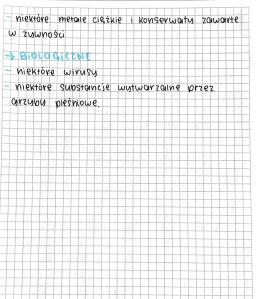 - niektóre metale ciężkie i konserwaty zawarte
w żywności
→ BIOLOGICZNE
- niektóre wirusy
- niektóre substancje wytwarzalne przez
grzyby pleśniowe.